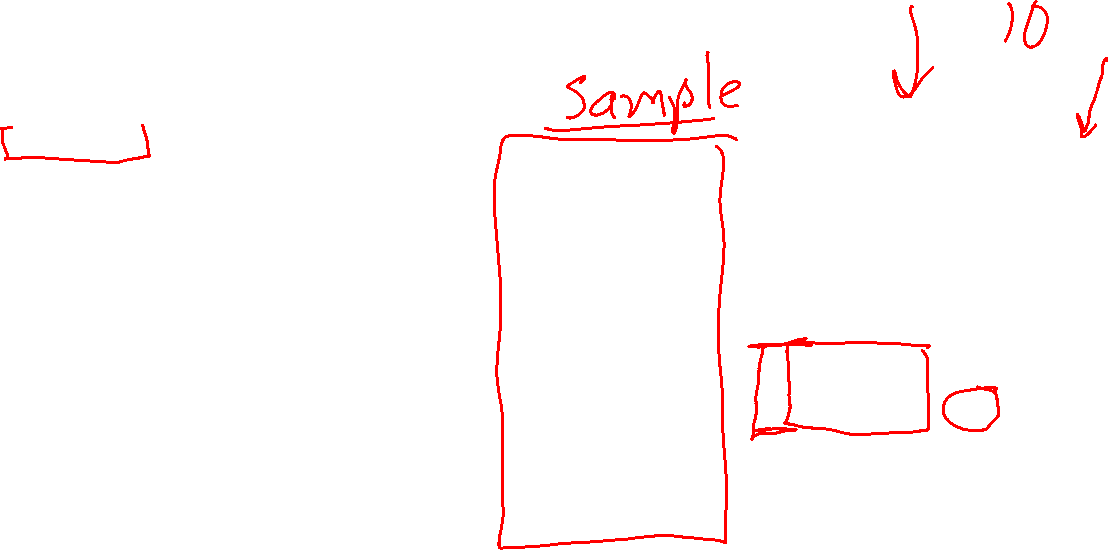 10
Sample